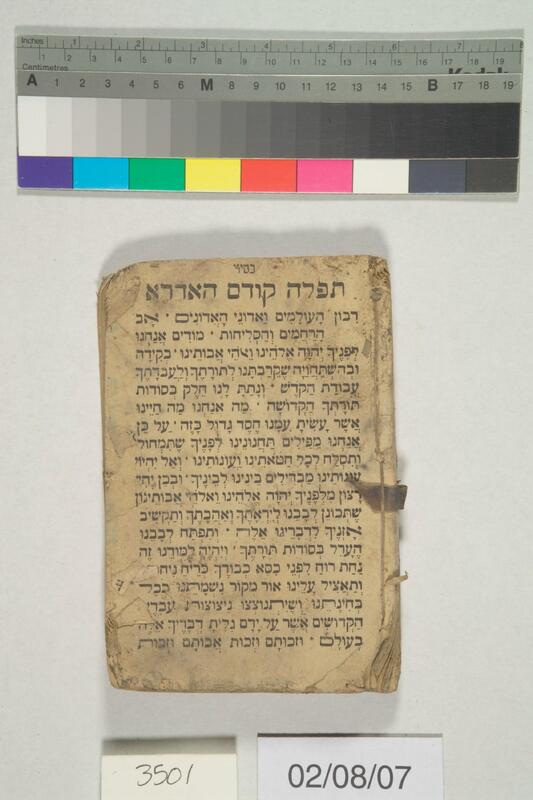 Inches 1 2 3 4 5 6 7 8
Centimetres 1 2 3 4 5 6 7 8 9 10 11 12 13 14 15 16 17 18 19
Kodak
A 1 2 3 4 5 6 M 8 9 10 11 12 13 14 15 B 17 18 19
תפלה קודם האדרא
רבון העולמים ואדוני האדונים · אב
הרחמים והסליחות · מודים אנחנו
לפניך יהוה אלהינו ואלהי אבותינו · בקידה
ובהשתחויה שקרבתנו לתורתך ולעבודתך
עבודת הקדש · ונתת לנו חלק בסודות
תורתך הקדושה · מה אנחנו מה חיינו
אשר עשית עמנו חסד גדול כזה · על כן
אנחנו מפילים תחנונינו לפניך שתמחול
ותסלח לכל חטאתינו ועונותינו · ואל יהיו
עונותינו מבדילים בינינו לבינך · ובכן יהי
רצון מלפניך יהוה אלהינו ואלהי אבותינו
שתכונן לבבנו ליראתך ואהבתך ותקשיב
אזניך לדברינו אלה · ותפתח לבבנו
הערל בסודות תורתך · ויהיה למודנו זה
נחת רוח לפני כסא כבודך כריח ניחח
ותאציל עלינו אור מקור נשמתנו בכל
בחינתנו ושיתנוצצו ניצוצות עבדיך
הקדושים אשר על ידם גלית דבריך אלה
בעולם · וזכותם וזכות אבותם וזכות
3501
02/08/07